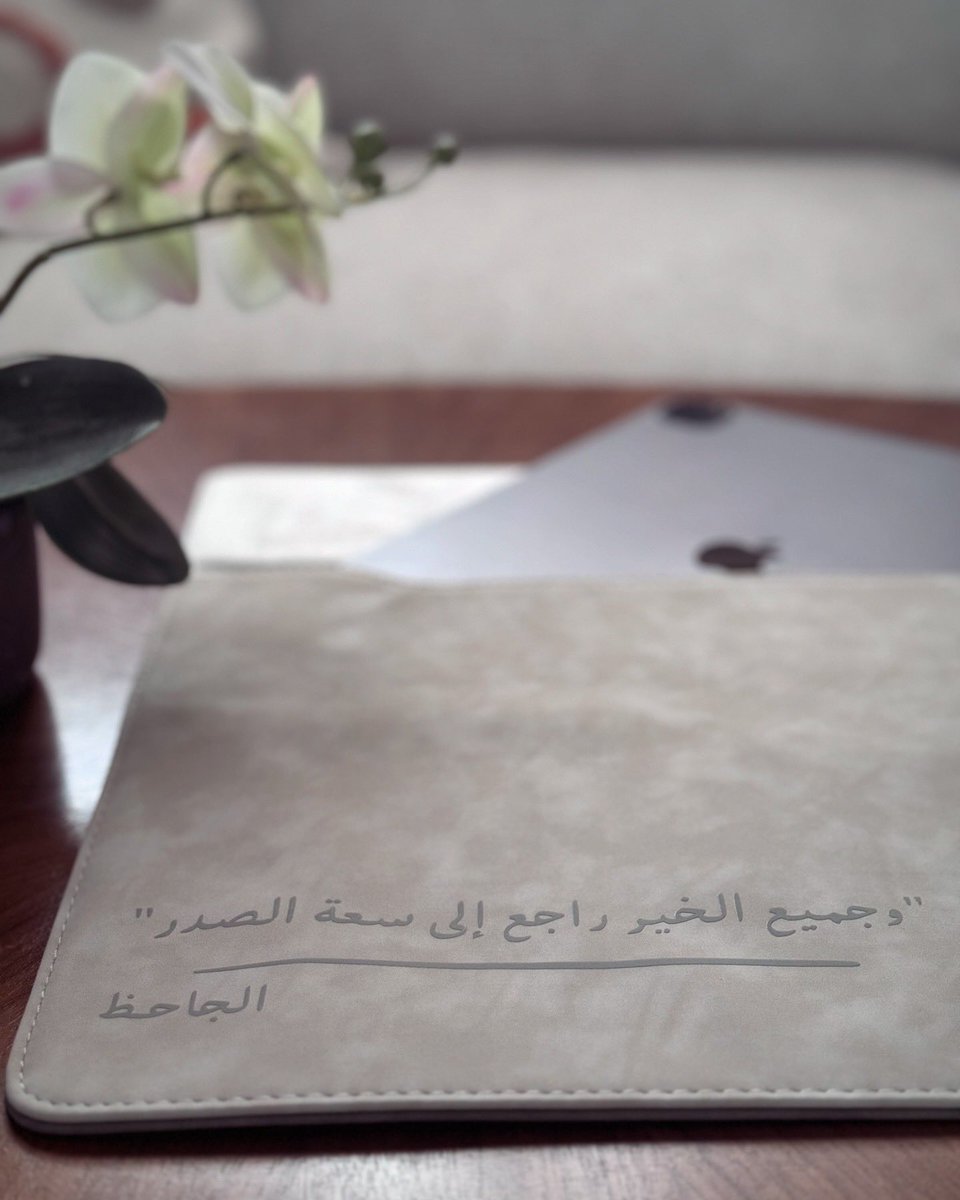 "وجميع الخير راجع إلى سعة الصدر"
الجاحظ